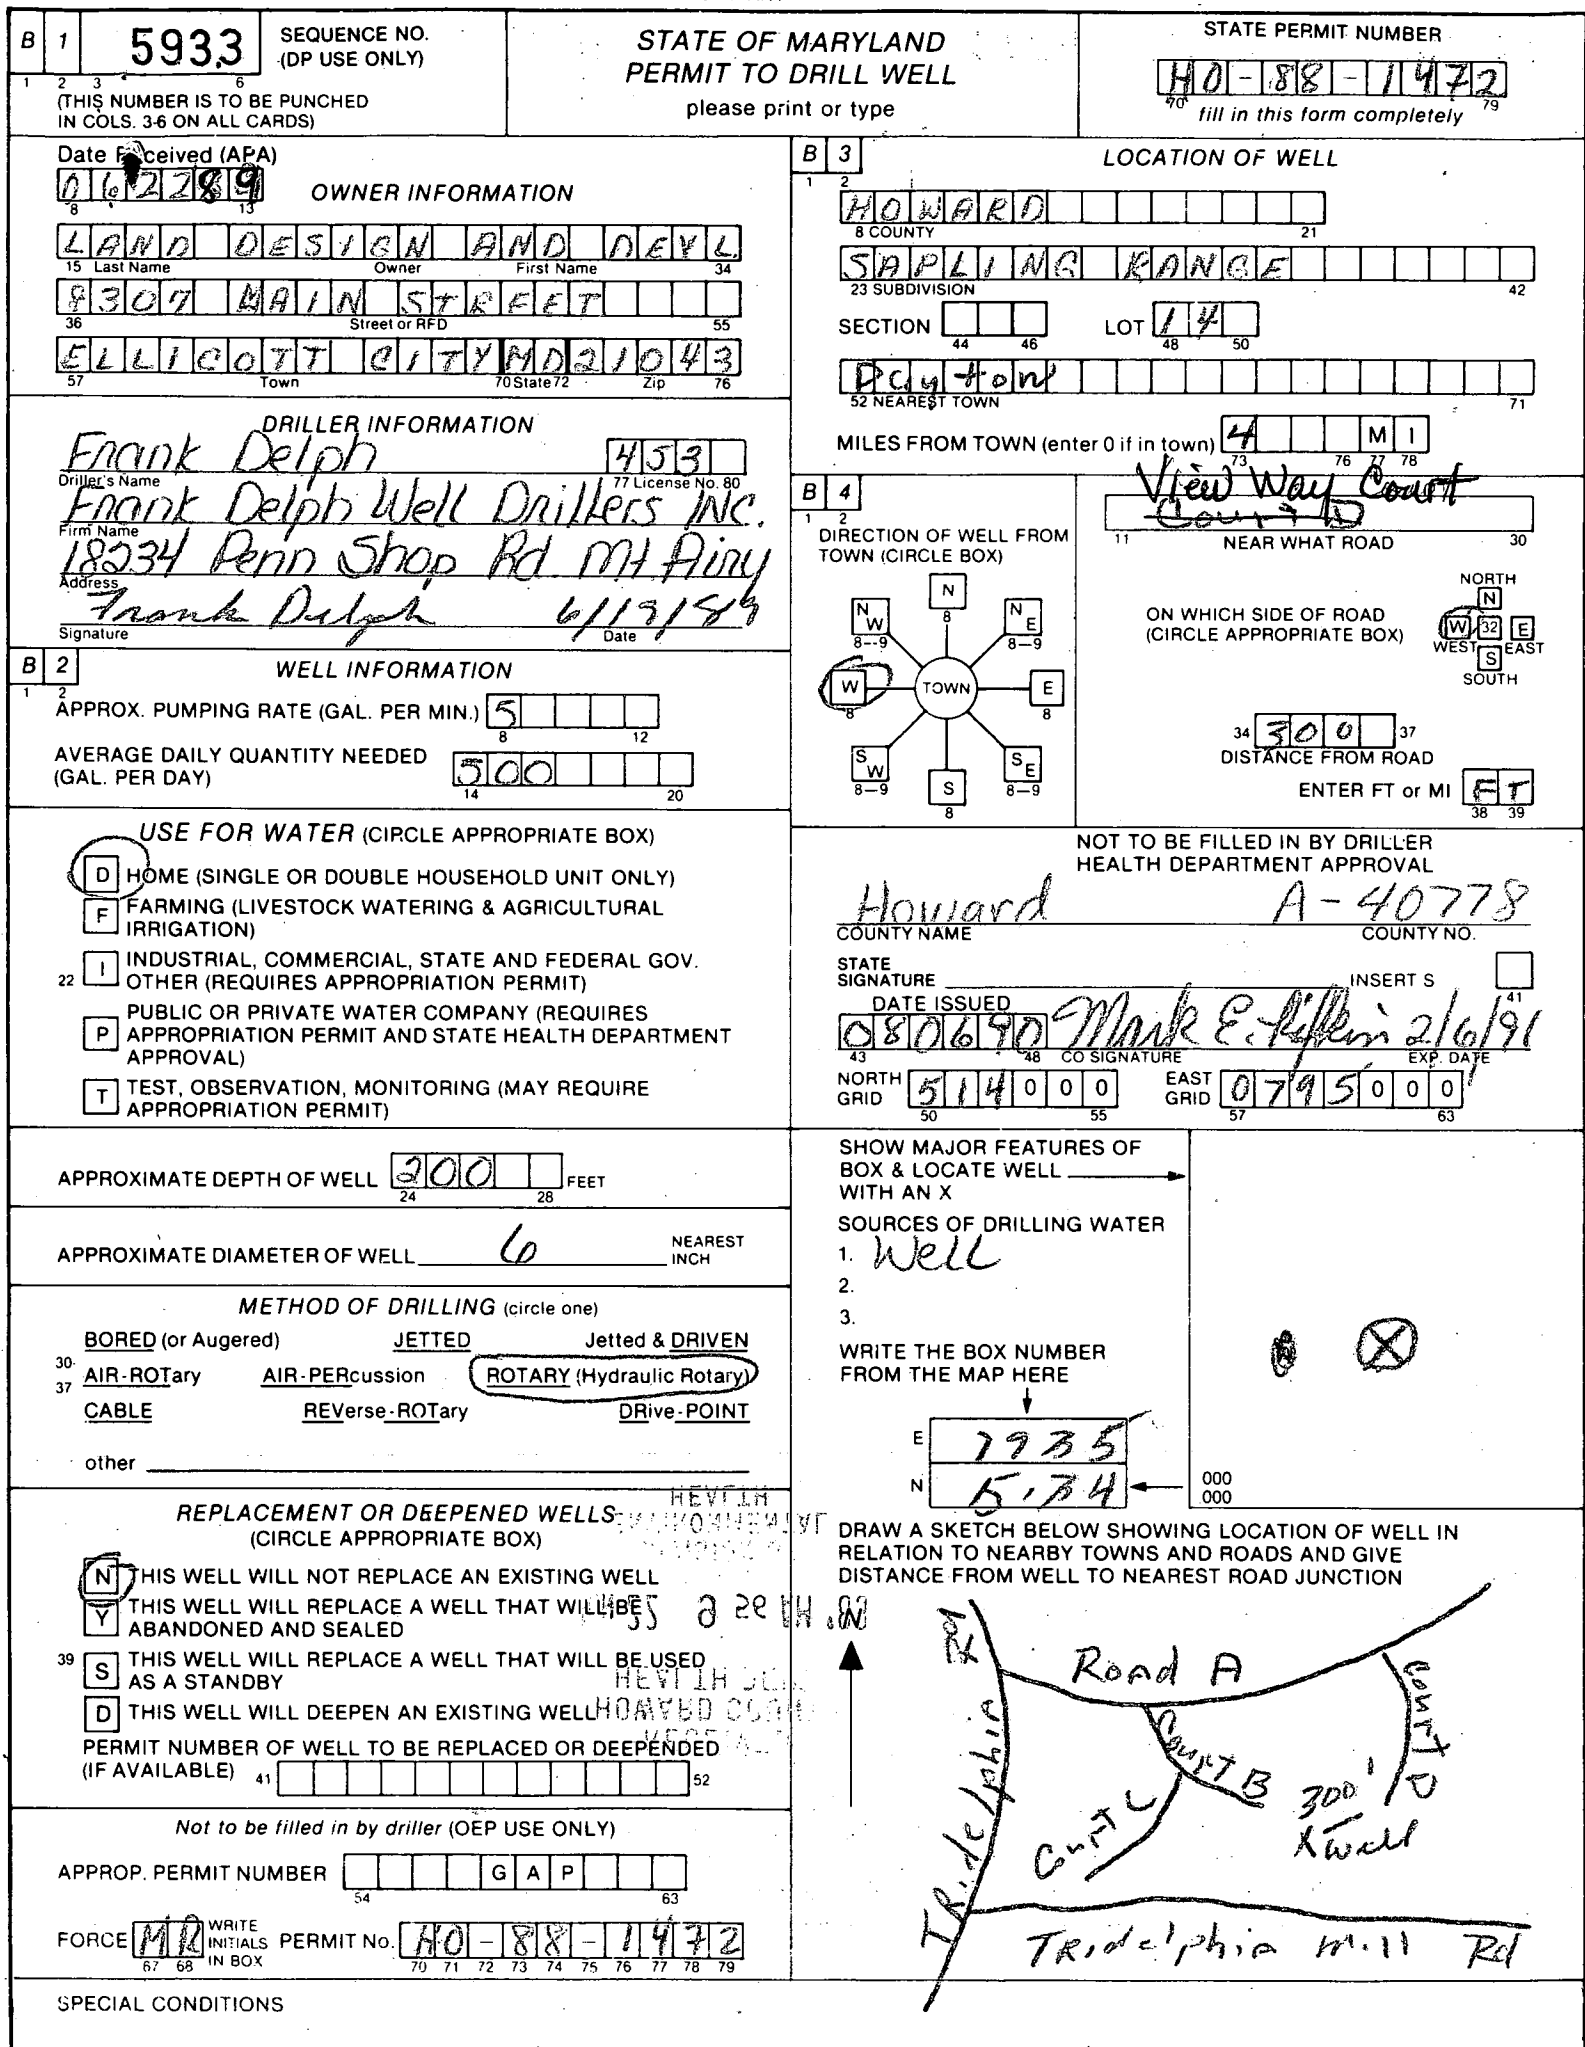 B 1 5933 SEQUENCE NO. (DP USE ONLY)
1 2 3 6
(THIS NUMBER IS TO BE PUNCHED
IN COLS. 3-6 ON ALL CARDS)
STATE OF MARYLAND
PERMIT TO DRILL WELL
please print or type
STATE PERMIT NUMBER
HO-88-1472
70 79
fill in this form completely
Date Received (APA)
062289
8 13
OWNER INFORMATION
LAND DESIGN AND DEVL.
15 Last Name Owner First Name 34
8307 MAIN STREET
36 Street or RFD 55
ELLICOTT CITY MD 21043
57 Town 70 State 72 Zip 76
DRILLER INFORMATION
Frank Delph 453
Driller's Name 77 License No. 80
Frank Delph Well Drillers INC.
Firm Name
18234 Penn Shop Rd Mt Airy
Address
Frank Delph 6/19/89
Signature Date
B 2 WELL INFORMATION
1 2
APPROX. PUMPING RATE (GAL. PER MIN.) 5
8 12
AVERAGE DAILY QUANTITY NEEDED
(GAL. PER DAY) 500
14 20
USE FOR WATER (CIRCLE APPROPRIATE BOX)
D HOME (SINGLE OR DOUBLE HOUSEHOLD UNIT ONLY)
F FARMING (LIVESTOCK WATERING & AGRICULTURAL
IRRIGATION)
22 I INDUSTRIAL, COMMERCIAL, STATE AND FEDERAL GOV.
OTHER (REQUIRES APPROPRIATION PERMIT)
P PUBLIC OR PRIVATE WATER COMPANY (REQUIRES
APPROPRIATION PERMIT AND STATE HEALTH DEPARTMENT
APPROVAL)
T TEST, OBSERVATION, MONITORING (MAY REQUIRE
APPROPRIATION PERMIT)
APPROXIMATE DEPTH OF WELL 200 FEET
24 28
APPROXIMATE DIAMETER OF WELL 6 NEAREST INCH
METHOD OF DRILLING (circle one)
BORED (or Augered) JETTED Jetted & DRIVEN
30-37 AIR-ROTary AIR-PERcussion ROTARY (Hydraulic Rotary)
CABLE REVerse-ROTary DRive-POINT
other
REPLACEMENT OR DEEPENED WELLS
(CIRCLE APPROPRIATE BOX)
N THIS WELL WILL NOT REPLACE AN EXISTING WELL
Y THIS WELL WILL REPLACE A WELL THAT WILL BE
ABANDONED AND SEALED
39 S THIS WELL WILL REPLACE A WELL THAT WILL BE USED
AS A STANDBY
D THIS WELL WILL DEEPEN AN EXISTING WELL
PERMIT NUMBER OF WELL TO BE REPLACED OR DEEPENDED
(IF AVAILABLE) 41 52
Not to be filled in by driller (OEP USE ONLY)
APPROP. PERMIT NUMBER G A P
54 63
FORCE MR WRITE INITIALS IN BOX PERMIT No. HO-88-1472
67 68 70 71 72 73 74 75 76 77 78 79
SPECIAL CONDITIONS
B 3 LOCATION OF WELL
1 2
HOWARD
8 COUNTY 21
SAPLING RANGE
23 SUBDIVISION 42
SECTION LOT 14
44 46 48 50
Dayton
52 NEAREST TOWN 71
MILES FROM TOWN (enter 0 if in town) 4 M I
73 76 77 78
B 4 View Way Court
1 2 Court D
11 NEAR WHAT ROAD 30
DIRECTION OF WELL FROM
TOWN (CIRCLE BOX)
N
8
NW NE
8--9 8—9
W TOWN E
8 8
SW SE
8—9 8—9
S
8
ON WHICH SIDE OF ROAD
(CIRCLE APPROPRIATE BOX)
NORTH
N
W 32 E
WEST EAST
S
SOUTH
34 300 37
DISTANCE FROM ROAD
ENTER FT or MI FT
38 39
NOT TO BE FILLED IN BY DRILLER
HEALTH DEPARTMENT APPROVAL
Howard A-40778
COUNTY NAME COUNTY NO.
STATE
SIGNATURE INSERT S
41
DATE ISSUED
080690 Mark E. Rifkin 2/6/91
43 48 CO SIGNATURE EXP. DATE
NORTH GRID 514000 EAST GRID 0795000
50 55 57 63
SHOW MAJOR FEATURES OF
BOX & LOCATE WELL
WITH AN X
SOURCES OF DRILLING WATER
1. Well
2.
3.
X
WRITE THE BOX NUMBER
FROM THE MAP HERE
E 7935
N 534
000
000
DRAW A SKETCH BELOW SHOWING LOCATION OF WELL IN
RELATION TO NEARBY TOWNS AND ROADS AND GIVE
DISTANCE FROM WELL TO NEAREST ROAD JUNCTION
N
TRidelphia Rd
Road A
Court B
Court C
Court D
300'
X well
TRidelphia Mill Rd